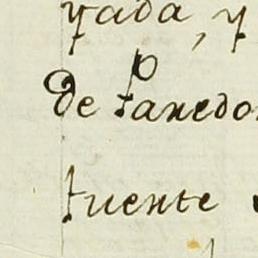 yada, y
de Paredo
fuente